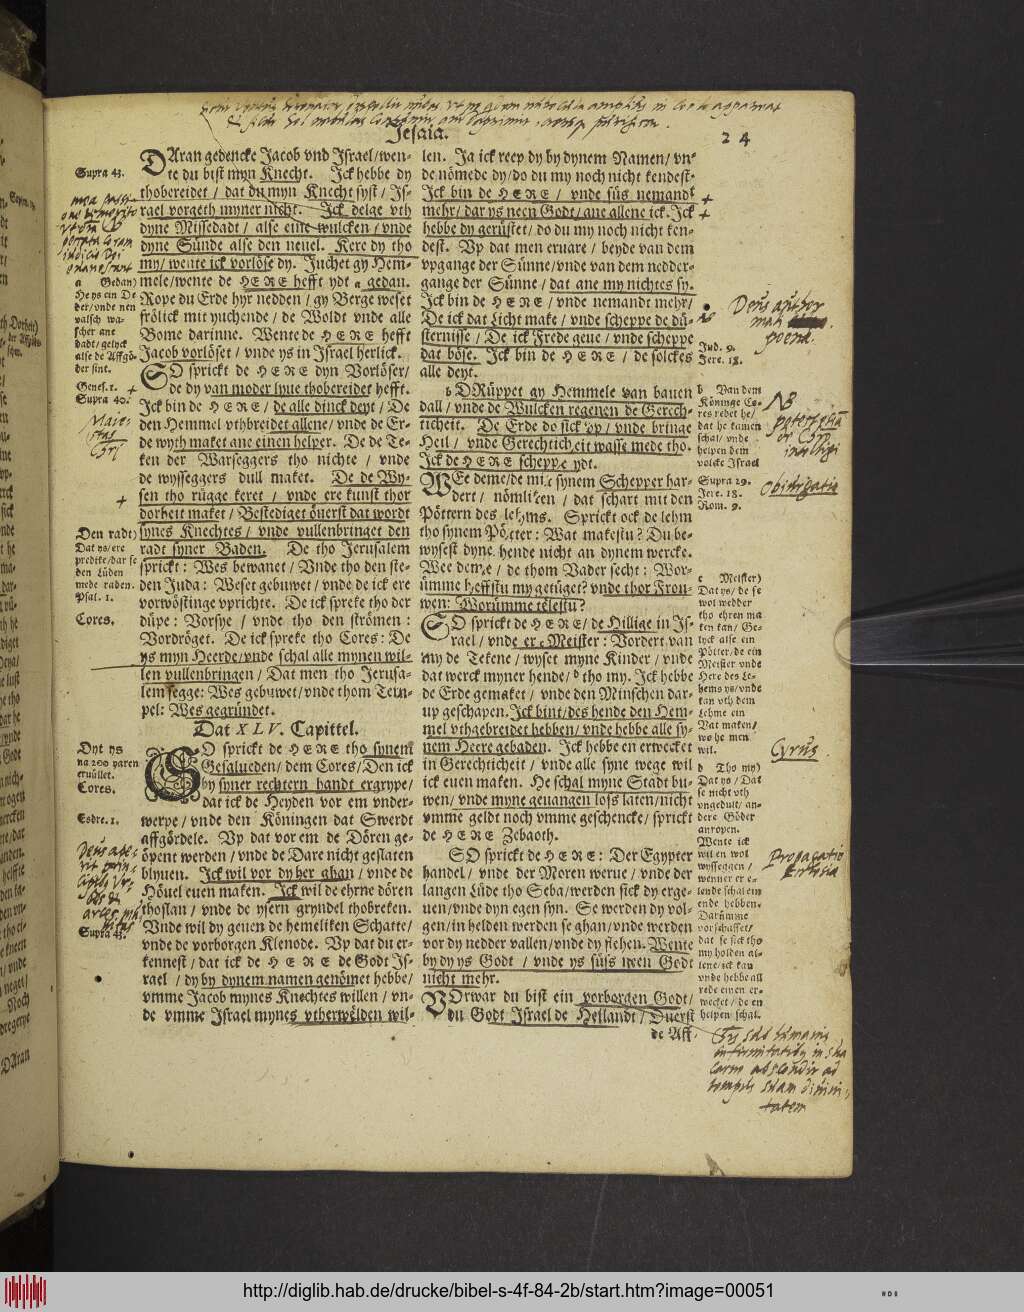 Jesaia.
24
DAran gedencke Jacob vnd Jsrael/wen-
te du bist myn Knecht. Jck hebbe dy
thobereidet/ dat du myn Knecht syst/ Js-
rael vorgeth myner nicht. Jck delge vth
dyne Missedadt/ alse eine wulcken/ vnde
dyne Sünde alse den neuel. Kere dy tho
my/ wente ick vorlöse dy. Juchet gy Hem-
mele/wente de HERE hefft ydt a gedan.
Rope du Erde hyr nedden/ gy Berge weset
frölick mit yuchende/ de Woldt vnde alle
Bome darinne. Wente de HERE hefft
Jacob vorlöset/ vnde ys in Jsrael herlick.
SO sprickt de HERE dyn Vorlöser/
de dy van moder lyue thobereidet hefft.
Jck bin de HERE/ de alle dinck deyt/ De
den Hemmel vthbreidet allene/ vnde de Er-
de wyth maket ane einen helper. De de Te-
ken der Warseggers tho nichte/ vnde
de wysseggers dull maket. De de Wy-
sen tho rügge keret/ vnde ere kunst thor
dorheit maket/ Bestediget öuerst dat wordt
synes Knechtes/ vnde vullenbringet den
radt syner Baden. De tho Jerusalem
sprickt: Wes bewanet/ Vnde tho den ste-
den Juda: Weset gebuwet/ vnde de ick ere
vorwöstinge vprichte. De ick spreke tho der
düpe: Vorsye/ vnde tho den strömen:
Vordröget. De ick spreke tho Cores: De
ys myn Heerde/ vnde schal alle mynen wil-
len vullenbringen/ Dat men tho Jerusa-
lem segge: Wes gebuwet/ vnde thom Tem-
pel: Wes gegründet.
Dat XLV. Capittel.
SO sprickt de HERE tho synem
Gesalueden/ dem Cores/ Den ick
by syner rechtern handt ergrype/
dat ick de Heyden vor em vnder-
werpe/ vnde den Köningen dat Swerdt
affgördele. Vp dat vor em de Dören ge-
öpent werden/ vnde de Dare nicht geslaten
blyuen. Jck wil vor dy her ghan/ vnde de
Höuel euen maken. Jck wil de ehrne dören
thoslan/ vnde de ysern gryndel thobreken.
Vnde wil dy geuen de hemeliken Schatte/
vnde de vorborgen Klenode. Vp dat du er-
kennest/ dat ick de HERE de Godt Js-
rael/ dy by dynem namen genömet hebbe/
vmme Jacob mynes Knechtes willen/ vn-
de vmme Jsrael mynes vtherwelden wil-
len. Ja ick reep dy by dynem Namen/ vn-
de nömede dy/ do du my noch nicht kendest.
Jck bin de HERE/ vnde süs nemandt
mehr/ dar ys neen Godt/ ane allene ick. Jck
hebbe dy gerüstet/ do du my noch nicht ken-
dest. Vp dat men eruare/ beyde van dem
vpgange der Sünne/ vnde van dem nedder-
gange der Sünne/ dat ane my nichtes sy.
Jck bin de HERE/ vnde nemandt mehr/
De ick dat Licht make/ vnde scheppe de dü-
sternisse/ De ick Frede geue/ vnde scheppe
dat böse. Jck bin de HERE/ de solckes
alle deyt.
b DRüppet gy Hemmele van bauen
dall/ vnde de Wulcken regenen de Gerech-
ticheit. De Erde do sick vp/ vnde bringe
Heil/ vnde Gerechticheit wasse mede tho.
Jck de HERE scheppe ydt.
WEe deme/ de mit synem Schepper har-
dert/ nömliken/ dat schart mit den
Pöttern des lehms. Sprickt ock de lehm
tho synem Pötter: Wat makestu? Du be-
wysest dyne hende nicht an dynem wercke.
Wee deme/ de thom Vader secht: Wor-
ümme heffstu my getüget? vnde thor Frou-
wen: Worümme telestu?
SO sprickt de HERE/ de Hillige in Js-
rael/ vnde er c Meister: Vordert van
my de Tekene/ wyset myne Kinder/ vnde
dat werck myner hende/ d tho my. Jck hebbe
de Erde gemaket/ vnde den Minschen dar-
up geschapen. Jck bint/ des hende den Hem-
mel vthgebreidet hebben/ vnde hebbe alle sy-
nem Heere gebaden. Jck hebbe en erwecket
in Gerechticheit/ vnde alle syne wege wil
ick euen maken. He schal myne Stadt bu-
wen/ vnde myne geuangen loss laten/ nicht
vmme geldt noch vmme geschencke/ sprickt
de HERE Zebaoth.
SO sprickt de HERE: Der Egypter
handel/ vnde der Moren werue/ vnde der
langen Lüde tho Seba/ werden sick dy erge-
uen/ vnde dyn egen syn. Se werden dy vol-
gen/ in helden werden se ghan/ vnde werden
vor dy nedder vallen/ vnde dy flehen. Wente
by dy ys Godt/ vnde ys süss neen Godt
nicht mehr.
VOrwar du bist ein vorborgen Godt/
du Godt Jsrael de Heilandt/ Ouerst
de Aff-
Supra 43.
a Gedan)
Genes. 1.
Supra 40.
Den radt)
Dat ys/ ere
predike/ dar se
den Lüden
mede raden.
Psal. 1.
Cores.
Dyt ys
na 200 yaren
eruüllet.
Cores.
Esdre. 1.
Supra 43.
Jud. 9.
Jere. 18.
b Van dem
Köninge Co-
res redet he/
dat he kamen
schal/ vnde
helpen dem
volcke Jsrael
Supra 29.
Jere. 18.
Rom. 9.
c Meister)
Dat ys/ de se
wol wedder
tho ehren ma
ken kan/ Ge-
lyck alse ein
Pötter/ de ein
Meister vnde
Here des Le-
hems ys/ vnde
kan vth dem
Lehme ein
Vat maken/
wo he men
wil.
d Tho my)
Dat ys/ Dat
se nicht vth
vngedult/ an-
dere Göder
anropen.
Wente ick
wil en wol
wysseggen/
wenner er e-
lende schal ein
ende hebben.
Darümme
vorschaffet/
dat se sick tho
my holden al-
lene/ ick kan
vnde hebbe all
rede einen er-
wecket/ de en
helpen schal.
Cyrus
Propagatio
Ecclesia
http://diglib.hab.de/drucke/bibel-s-4f-84-2b/start.htm?image=00051